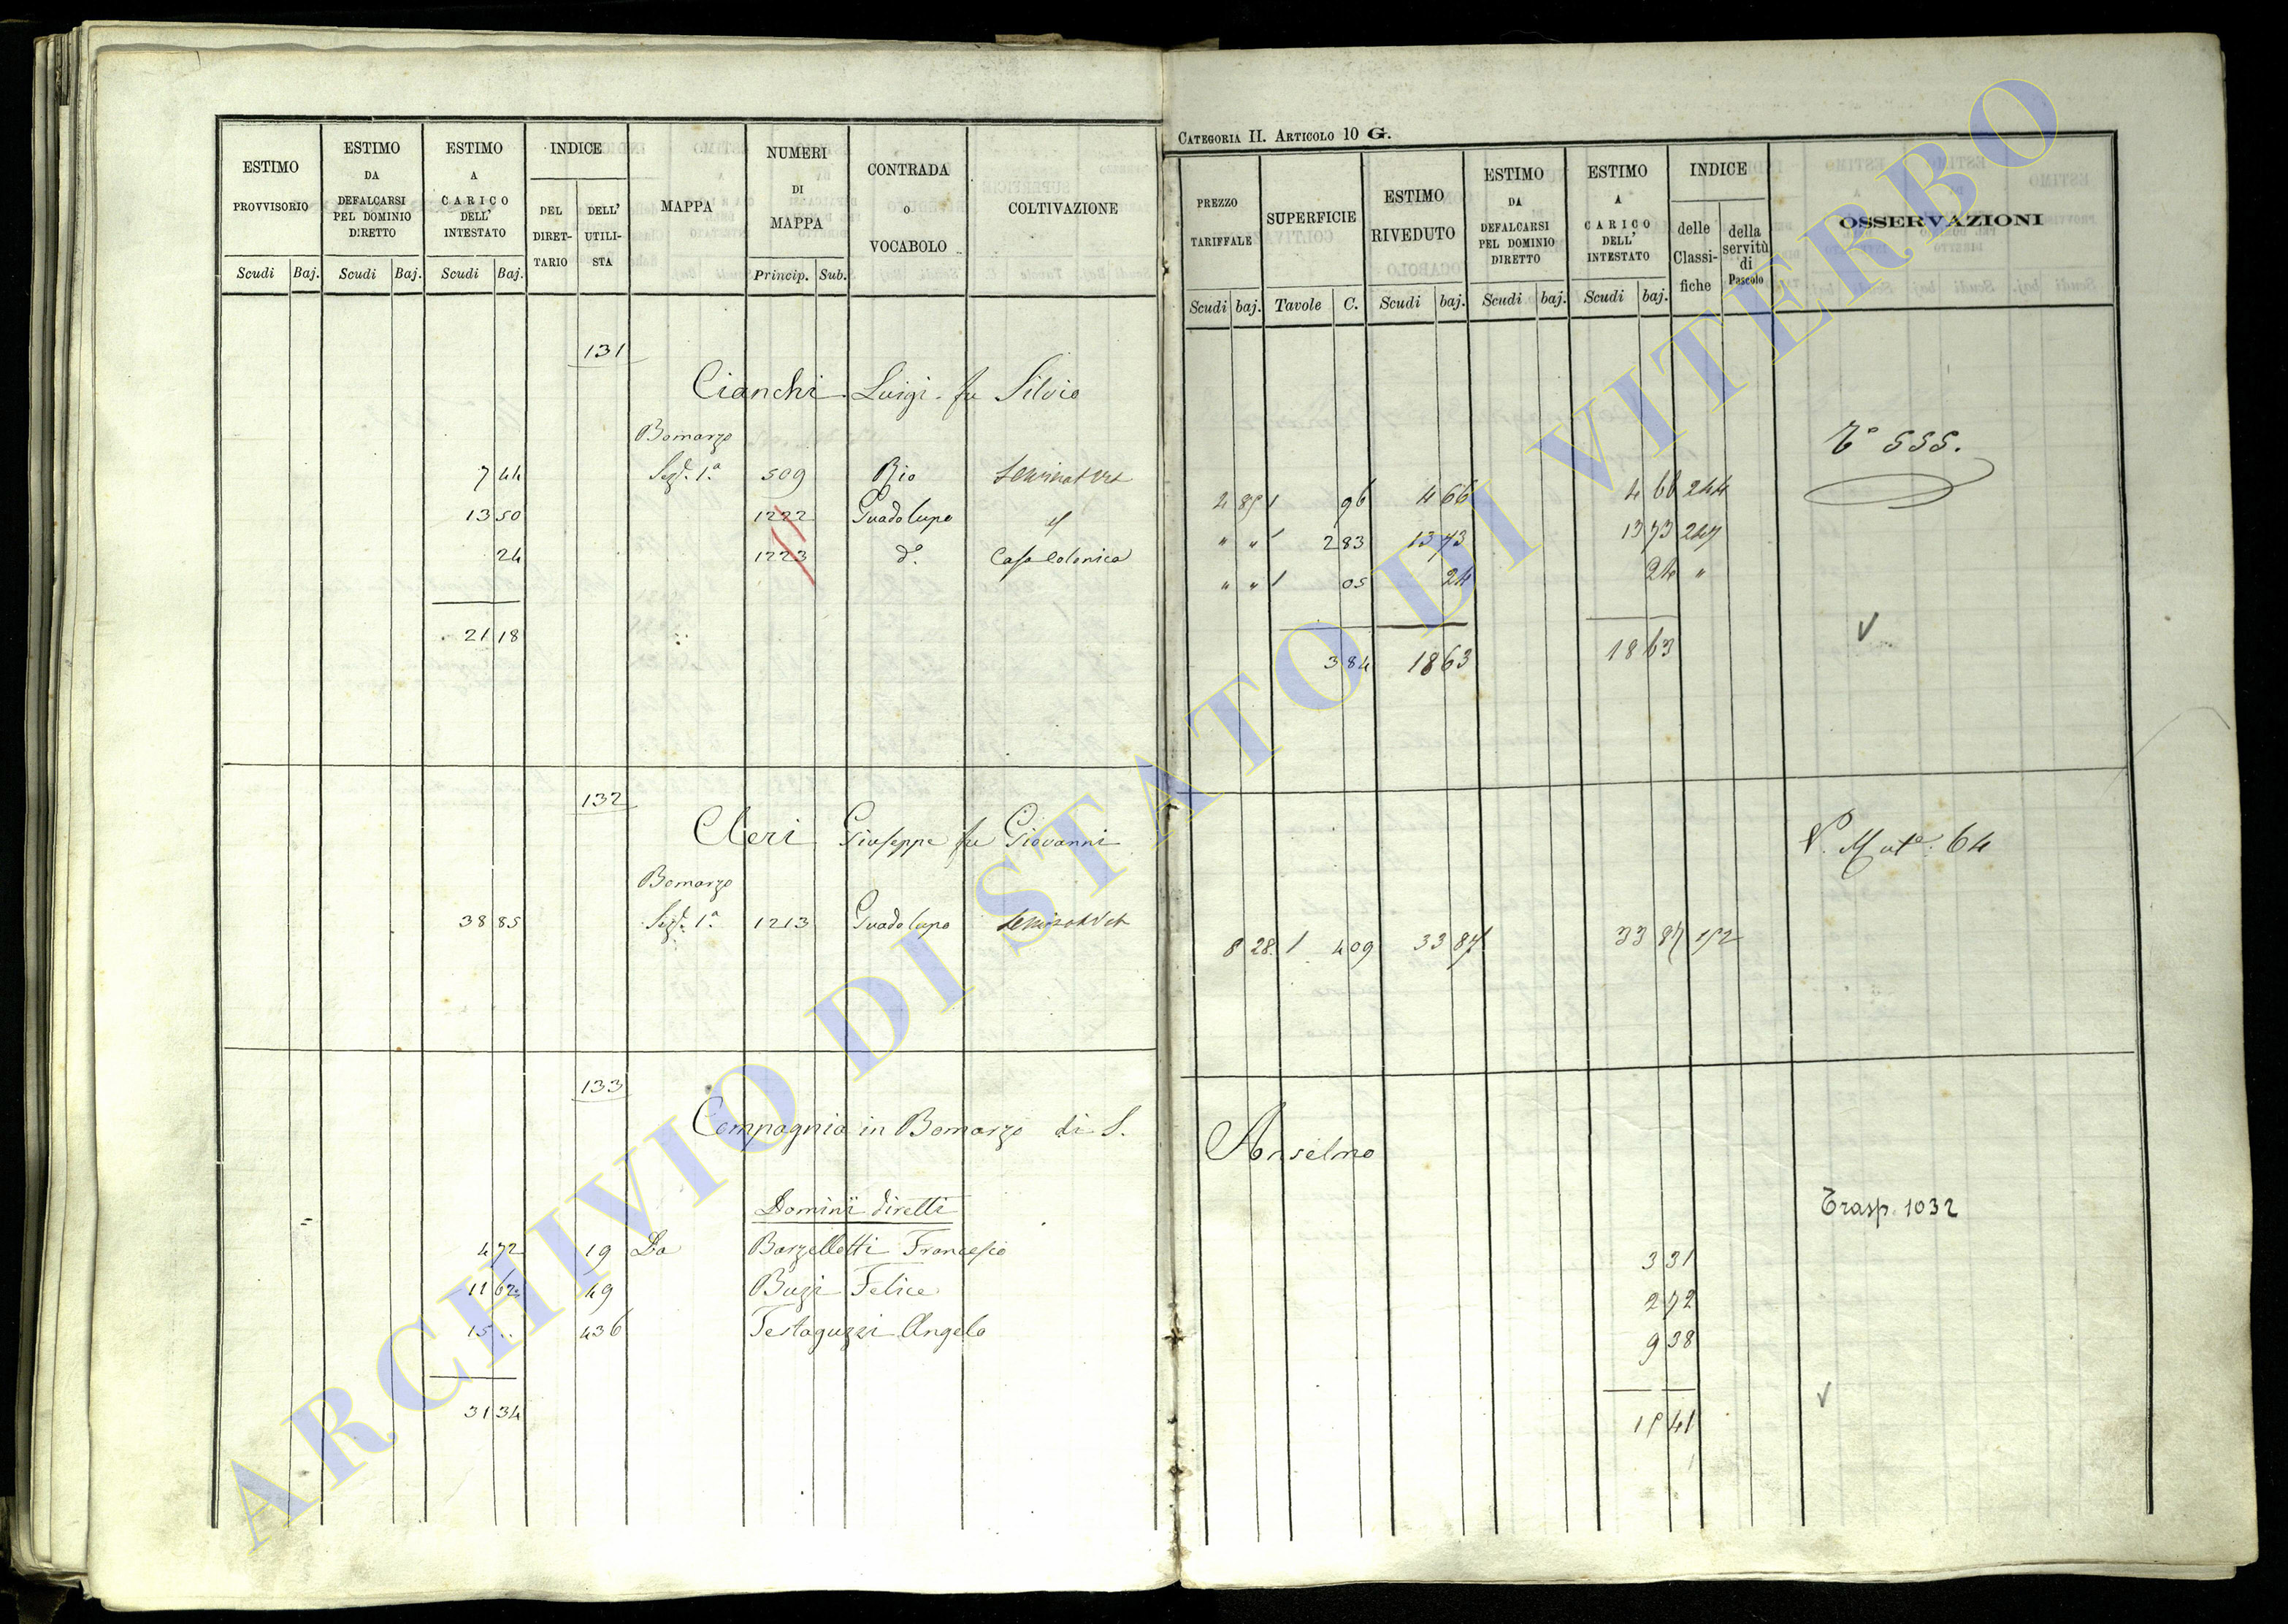 ESTIMO PROVVISORIO Scudi Baj.
ESTIMO DA DEFALCARSI PEL DOMINIO DIRETTO Scudi Baj.
ESTIMO A CARICO DELL' INTESTATO Scudi Baj.
INDICE DEL DIRET- TARIO DELL' UTILI- STA
MAPPA
NUMERI DI MAPPA Princip. Sub.
CONTRADA O VOCABOLO
COLTIVAZIONE
131
Cianchi Luigi fu Silvio
Bomarzo
7 44 Sezf. 1.a 509 Rio Seminat Vit
13 50 1222 Guadalupo
24 1223 do. Casa Colonica
21 18
132
Cleri Giuseppe fu Giovanni
Bomarzo
38 85 Sezf. 1.a 1213 Guadalupo Seminat Vit
133
Compagnia in Bomarzo di S.
Dominii diretti
4 72 19 Da Barzellotti Francesco
11 62 49 Buzi Felice
15 .. 436 Testaguzzi Angelo
31 34
CATEGORIA II. ARTICOLO 10 G.
PREZZO TARIFFALE Scudi baj.
SUPERFICIE Tavole C.
ESTIMO RIVEDUTO Scudi baj.
ESTIMO DA DEFALCARSI PEL DOMINIO DIRETTO Scudi baj.
ESTIMO A CARICO DELL' INTESTATO Scudi baj.
INDICE delle Classi- fiche della servitù di Pascolo
OSSERVAZIONI
To 555.
4 85 1 96 4 66 4 66 244
" " 1 2 83 13 73 13 73 247
" " 1 05 24 24 "
3 84 18 63 18 63
V. Muta. 64
8 28 1 4 09 33 87 33 87 152
Anselmo
Trasp. 1032
3 31
2 72
9 38
15 41
ARCHIVIO DI STATO DI VITERBO